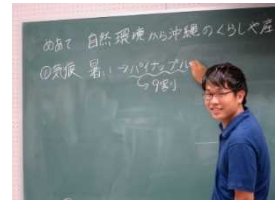 めあて 自然環境から沖縄のくらしや産
①気候 暑い→パイナップル
↳9割